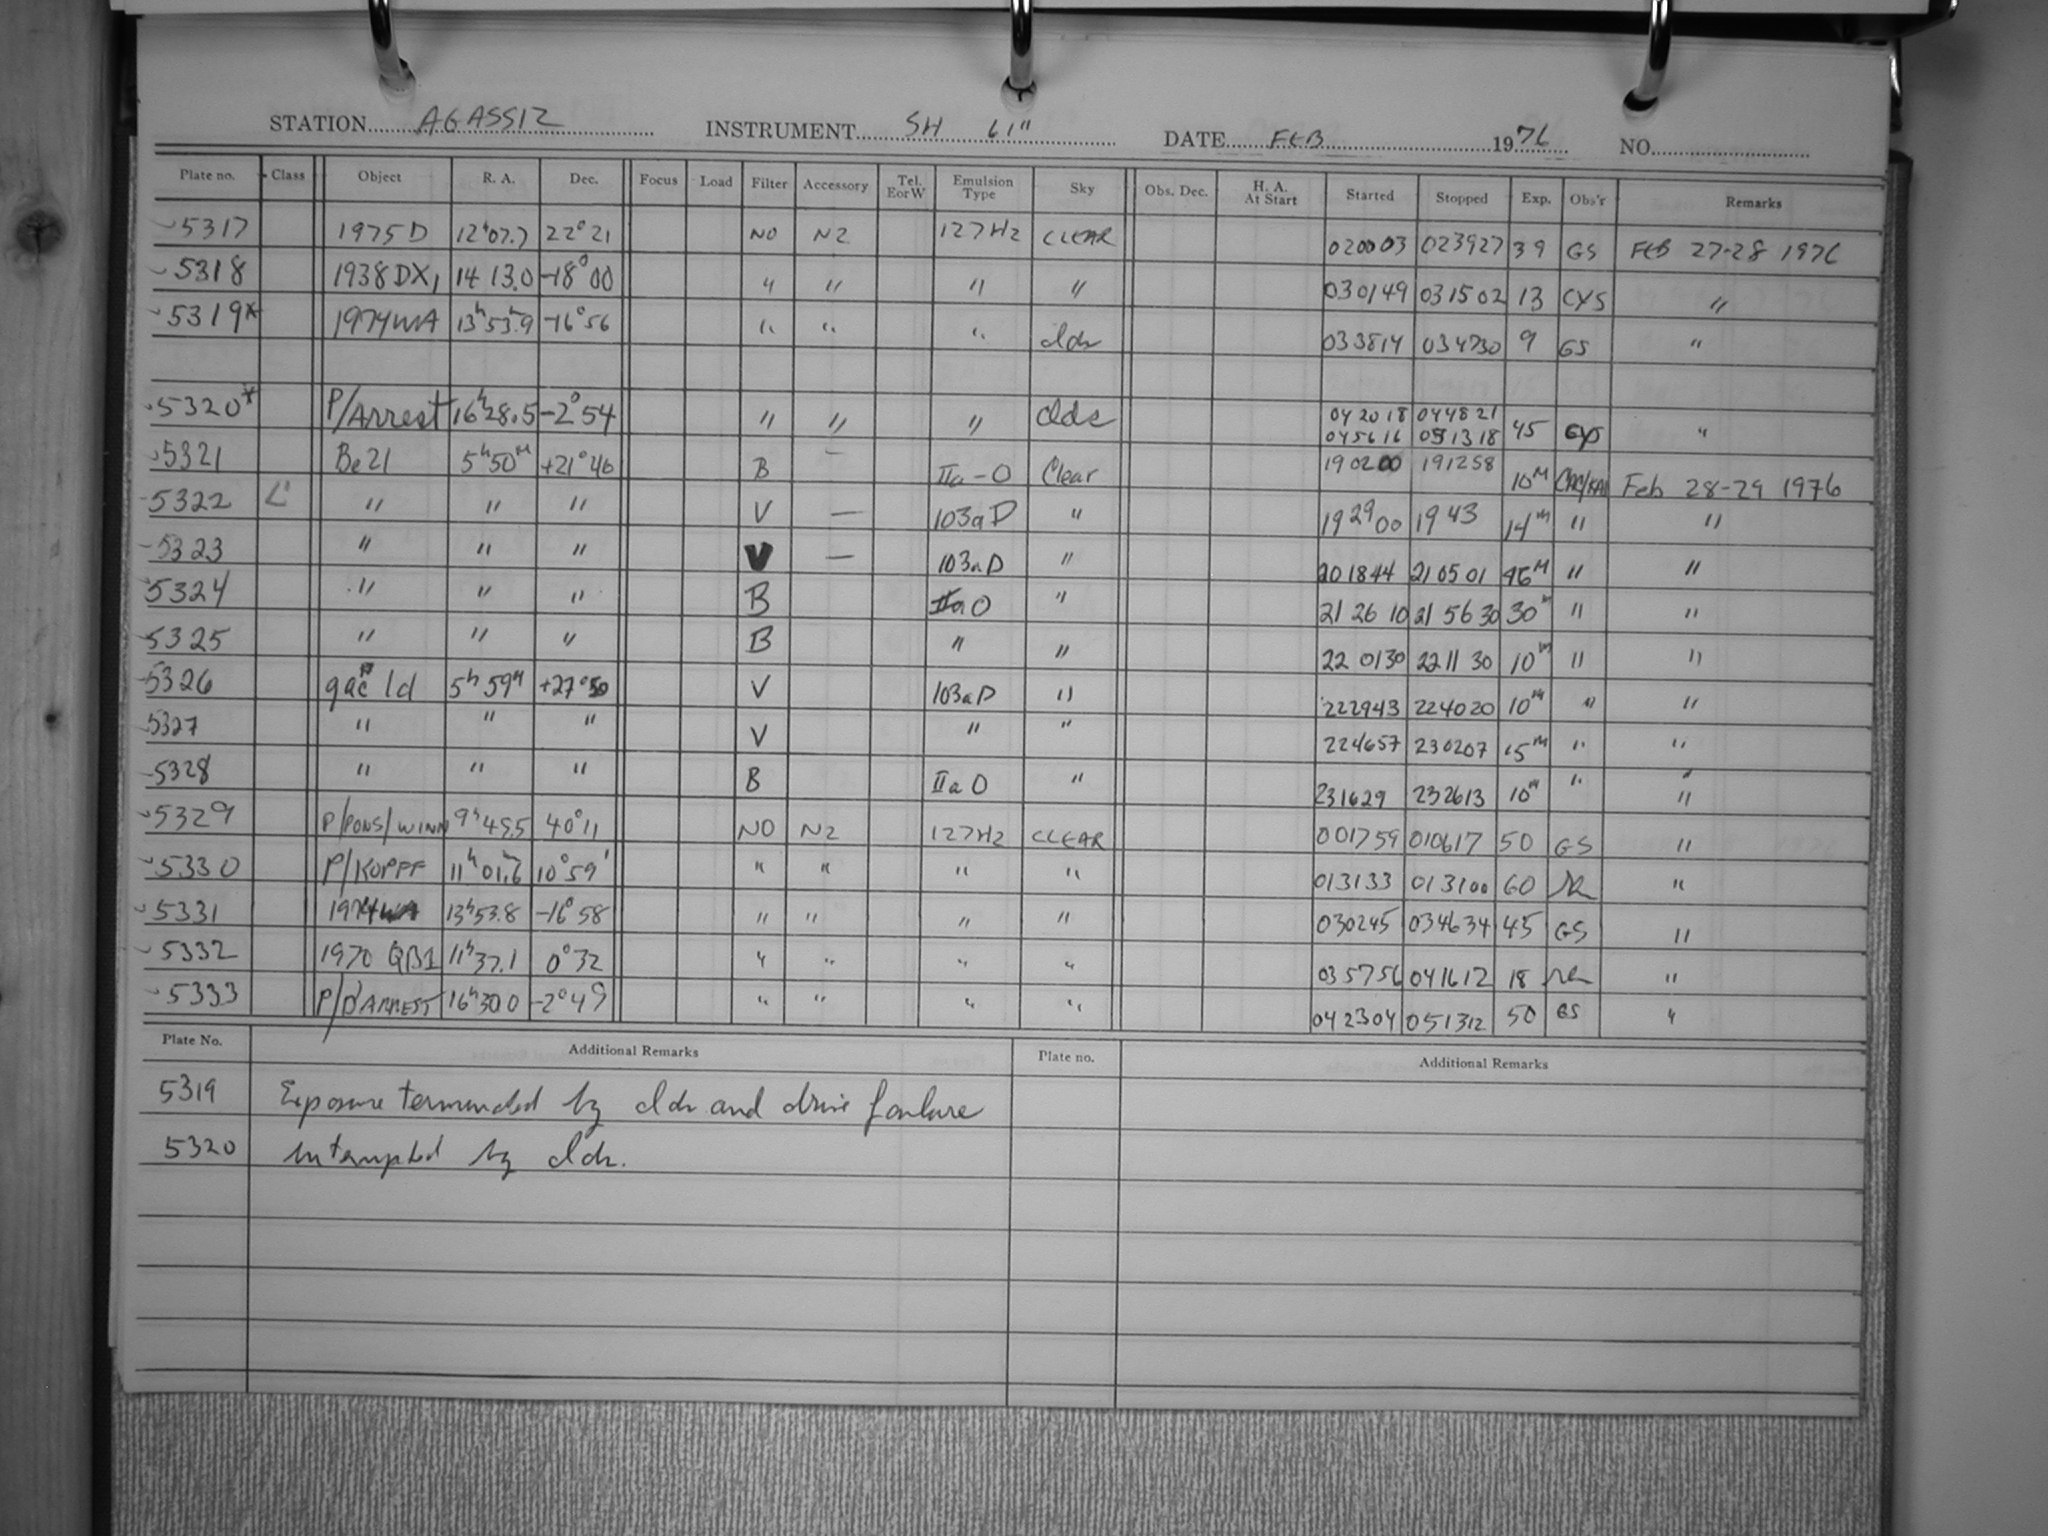 STATION AGASSIZ INSTRUMENT SH 61" DATE FEB 1976 NO.
Plate no. Class Object R. A. Dec. Focus Load Filter Accessory Tel. E or W Emulsion Type Sky Obs. Dec. H. A. At Start Started Stopped Exp. Obs'r Remarks
5317 1975D 12h07.7 22°21 NO N2 127H2 CLEAR 020003 023927 39 GS FEB 27-28 1976
5318 1938DX1 14 13.0 -18°00 " " " " 030149 031502 13 CYS "
5319* 1974WA 13h53.9 -16°56 " " " clds 033814 034730 9 GS "
5320* P/Arrest 16h28.5 -2°54 " " " clds 042018 044821 45 CYS "
045616 051318
5321 Be21 5h50m +21°46 B – IIa-O Clear 190200 191258 10M Feb 28-29 1976
5322 " " " V — 103aD " 192900 1943 14m " "
5323 " " " V — 103aD " 201844 210501 46M " "
5324 " " " B IIaO " 21 26 10 21 56 30 30m " "
5325 " " " B " " 22 0130 2211 30 10m " "
5326 5h 59m +27°50 V 103aD " 222943 224020 10m " "
5327 " " " V " " 224657 230207 15m " "
5328 " " " B IIaO " 231629 232613 10m " "
5329 P/PONS/WINN 9h49.5 40°11 NO N2 127H2 CLEAR 001759 010617 50 GS "
5330 P/KOPFF 11h01.6 10°59' " " " " 013133 013100 60 "
5331 1974WA 13h53.8 -16°58 " " " " 030245 034634 45 GS "
5332 1970 QB1 11h37.1 0°32 " " " " 035756 041612 18 "
5333 P/D'ARREST 16h30.0 -2°49 " " " " 042304 051312 50 GS "
Plate No. Additional Remarks Plate no. Additional Remarks
5319 Exposure terminated by clds and drive failure
5320 interrupted by clds.